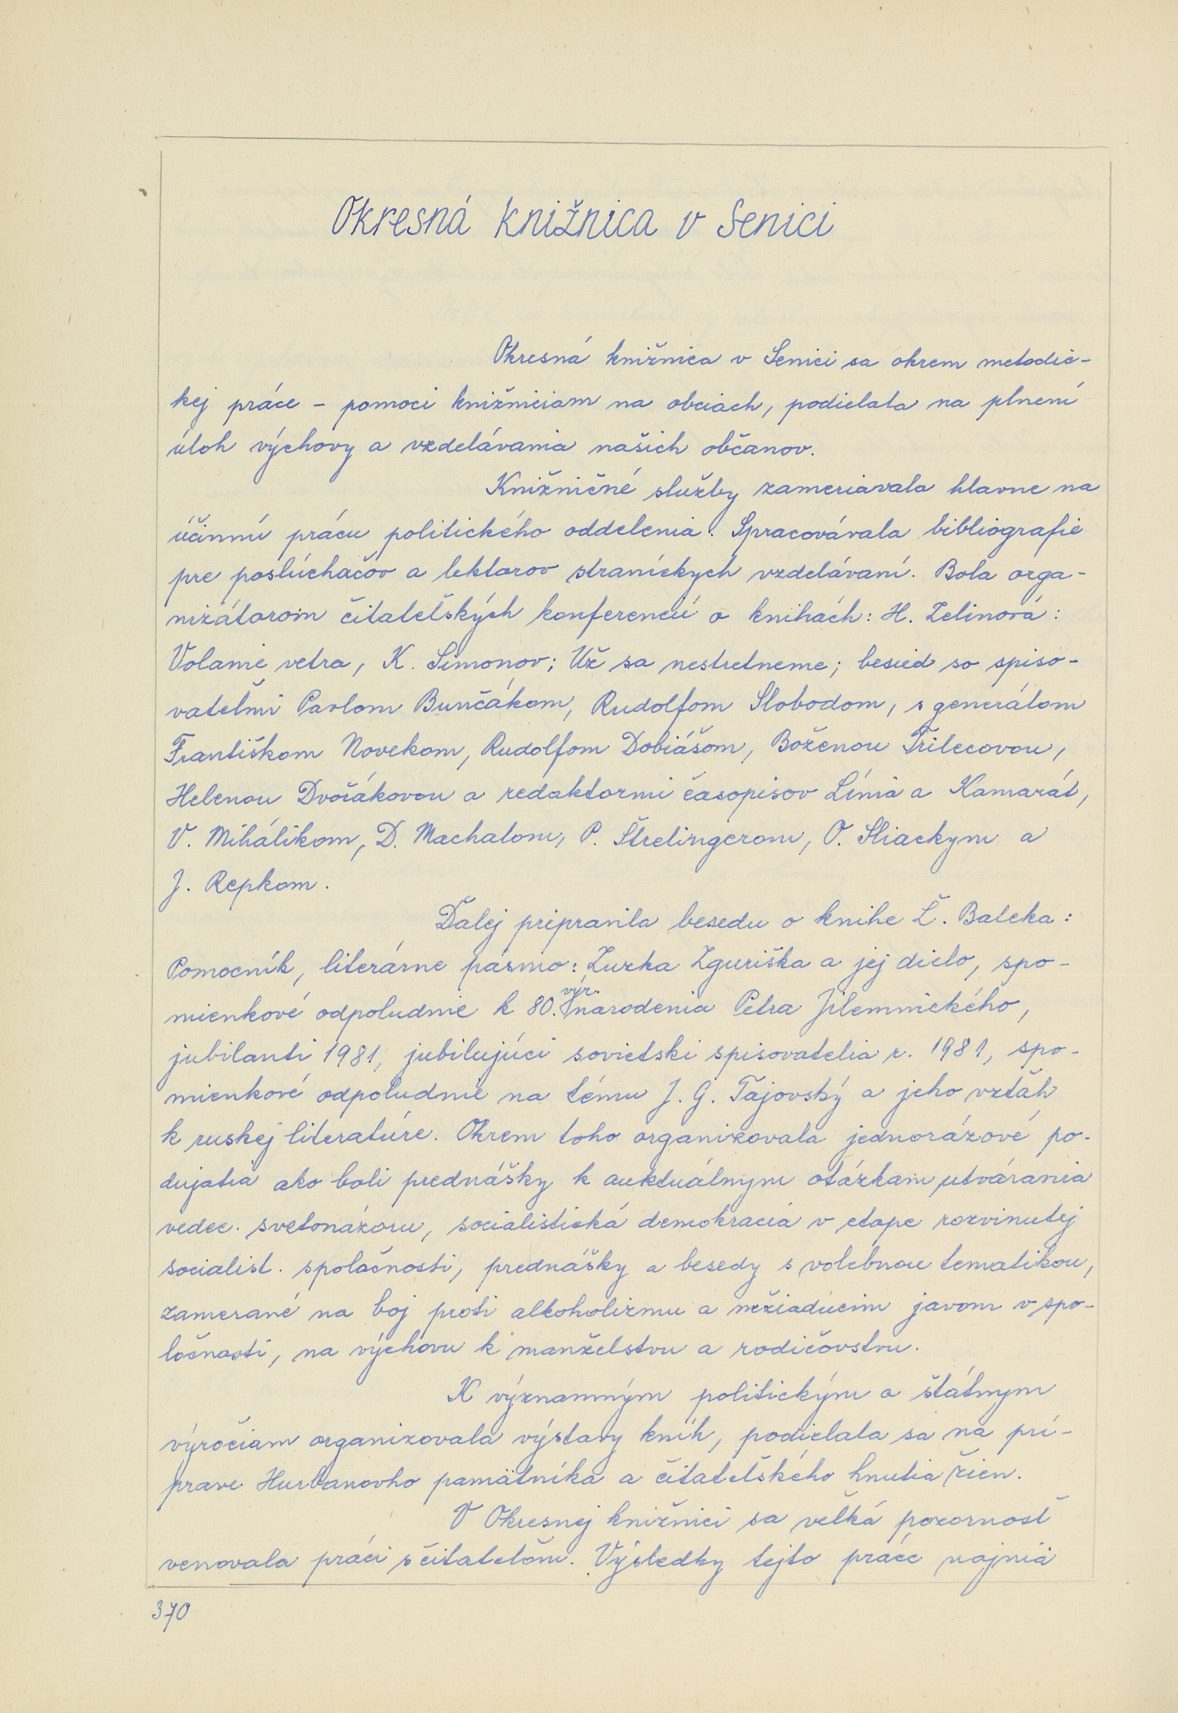 Okresná knižnica v Senici
Okresná knižnica v Senici sa okrem metodic-
kej práce - pomoci knižniciam na obciach, podielala na plnení
úloh výchovy a vzdelávania našich občanov.
Knižničné služby zameriavala hlavne na
účinnú prácu politického oddelenia. Spracovávala bibliografie
pre poslúchačov a lektorov straníckych vzdelávaní. Bola orga-
nizátorom čitateľských konferencií o knihách: H. Zelinová:
Volanie vetra, K. Simonov; Už sa nestretneme; besied so spiso-
vateľmi Pavlom Bunčákom, Rudolfom Slobodom, s generálom
Františkom Novekom, Rudolfom Dobiášom, Boženou Trilecovou,
Helenou Dvořákovou a redaktormi časopisov Línia a Kamarát,
V. Mihálikom, D. Machalom, P. Štrelingerom, O. Sliackym a
J. Repkom.
Ďalej pripravila besedu o knihe L. Baleka:
Pomocník, literárne pásmo: Zuzka Zguriška a jej dielo, spo-
mienkové odpoludnie k 80. výr. narodenia Petra Jilemnického,
jubilanti 1981, jubilujúci sovietski spisovatelia r. 1981, spo-
mienkové odpoludnie na tému J. G. Tajovský a jeho vzťah
k ruskej literatúre. Okrem toho organizovala jednorázové po-
dujatia ako boli prednášky k auktuálnym otázkam utvárania
vedec. svetonázoru, socialistická demokracia v etape rozvinutej
socialist. spoločnosti, prednášky a besedy s volebnou tematikou,
zamerané na boj proti alkoholizmu a nežiadúcim javom v spo-
ločnosti, na výchovu k manželstvu a rodičovstvu.
K významným politickým a štátnym
výročiam organizovala výstavy kníh, podielala sa na prí-
prave Hurbanovho pamätníka a čitateľského hnutia žien.
V Okresnej knižnici sa veľká pozornosť
venovala práci s čitateľom. Výsledky tejto práce najmä
370